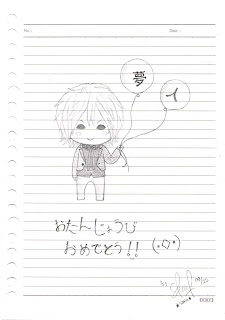 No.: Date:
夢 人
おたんじょうび
おめでとう!! (.◇.)
by
0003